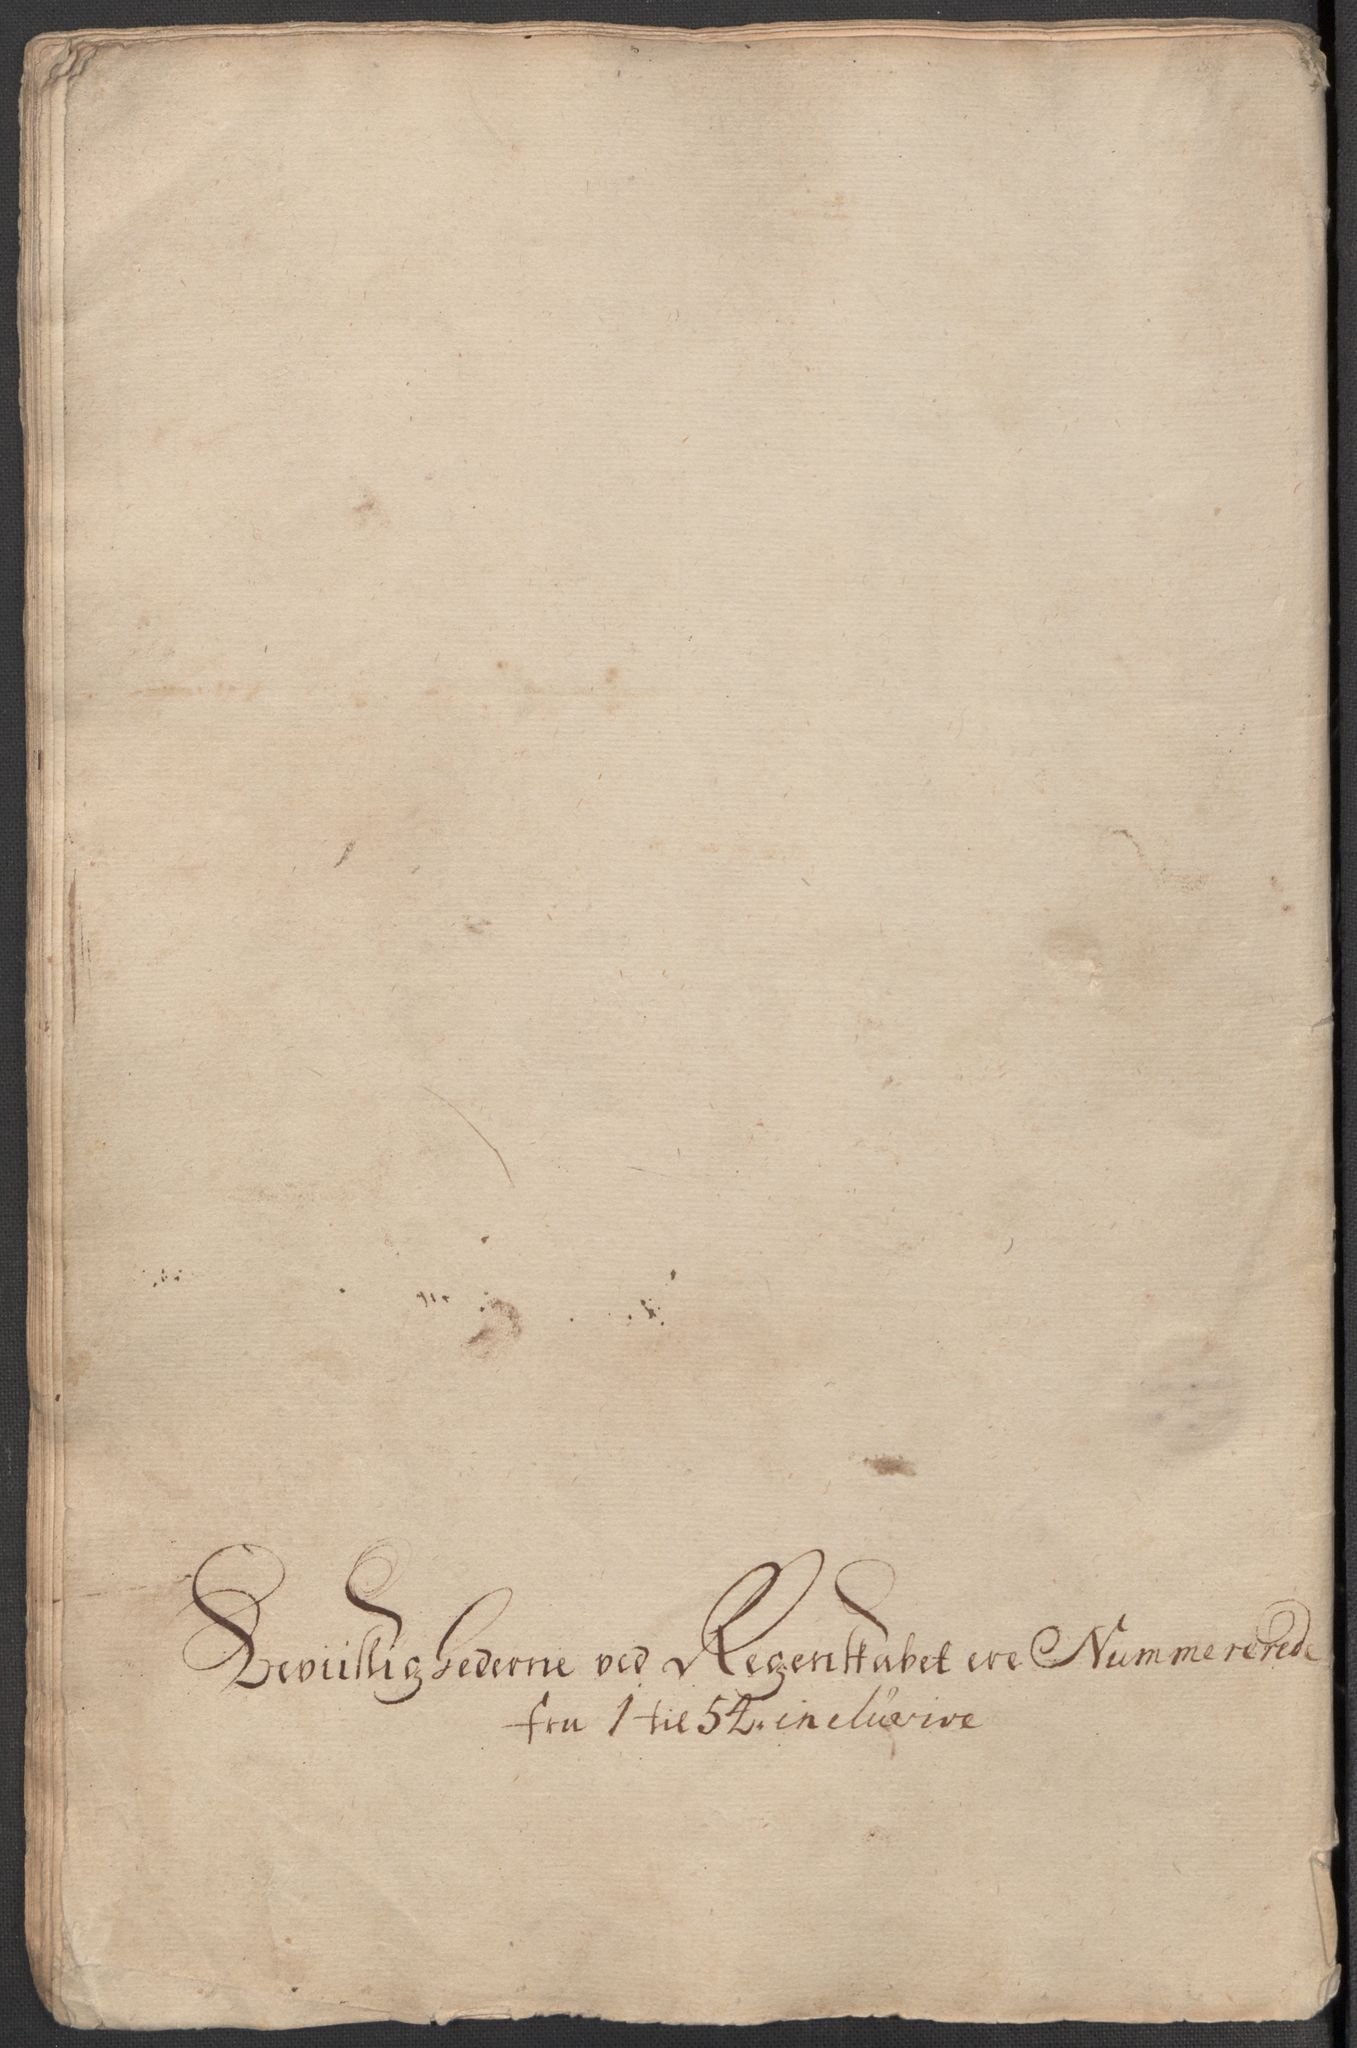 Beviislighederne ved Regenskabet ere Nummererede
fra 1 til 52. inclusive